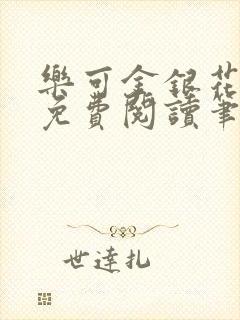 樂可金銀花
免費閱讀筆
世達扎